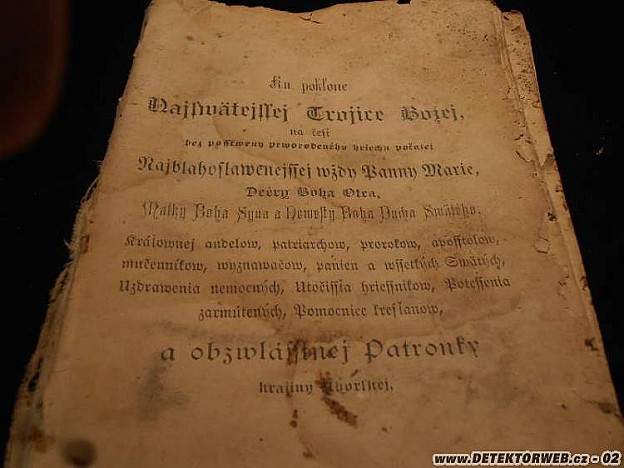 Ku poklone
Najswätejssej Trojice Božej,
na česť
bez posskwrny prworodeného hriechu počatej
Najblahoslawenejssej wždy Panny Marie,
Dcéry Boha Otca,
Matky Boha Syna a Newesty Boha Ducha Swätého,
Králownej andelow, patriarchow, prorokow, aposstolow,
mučenníkow, wyznawačow, panien a wssetkých Swätých,
Uzdrawenia nemocných, Utočissťa hriessnikow, Potessenia
zarmútených, Pomocnice kresťanow,
a obzwlásstnej Patronky
krajiny Uhorskej.
www.DETEKTORWEB.cz - 02